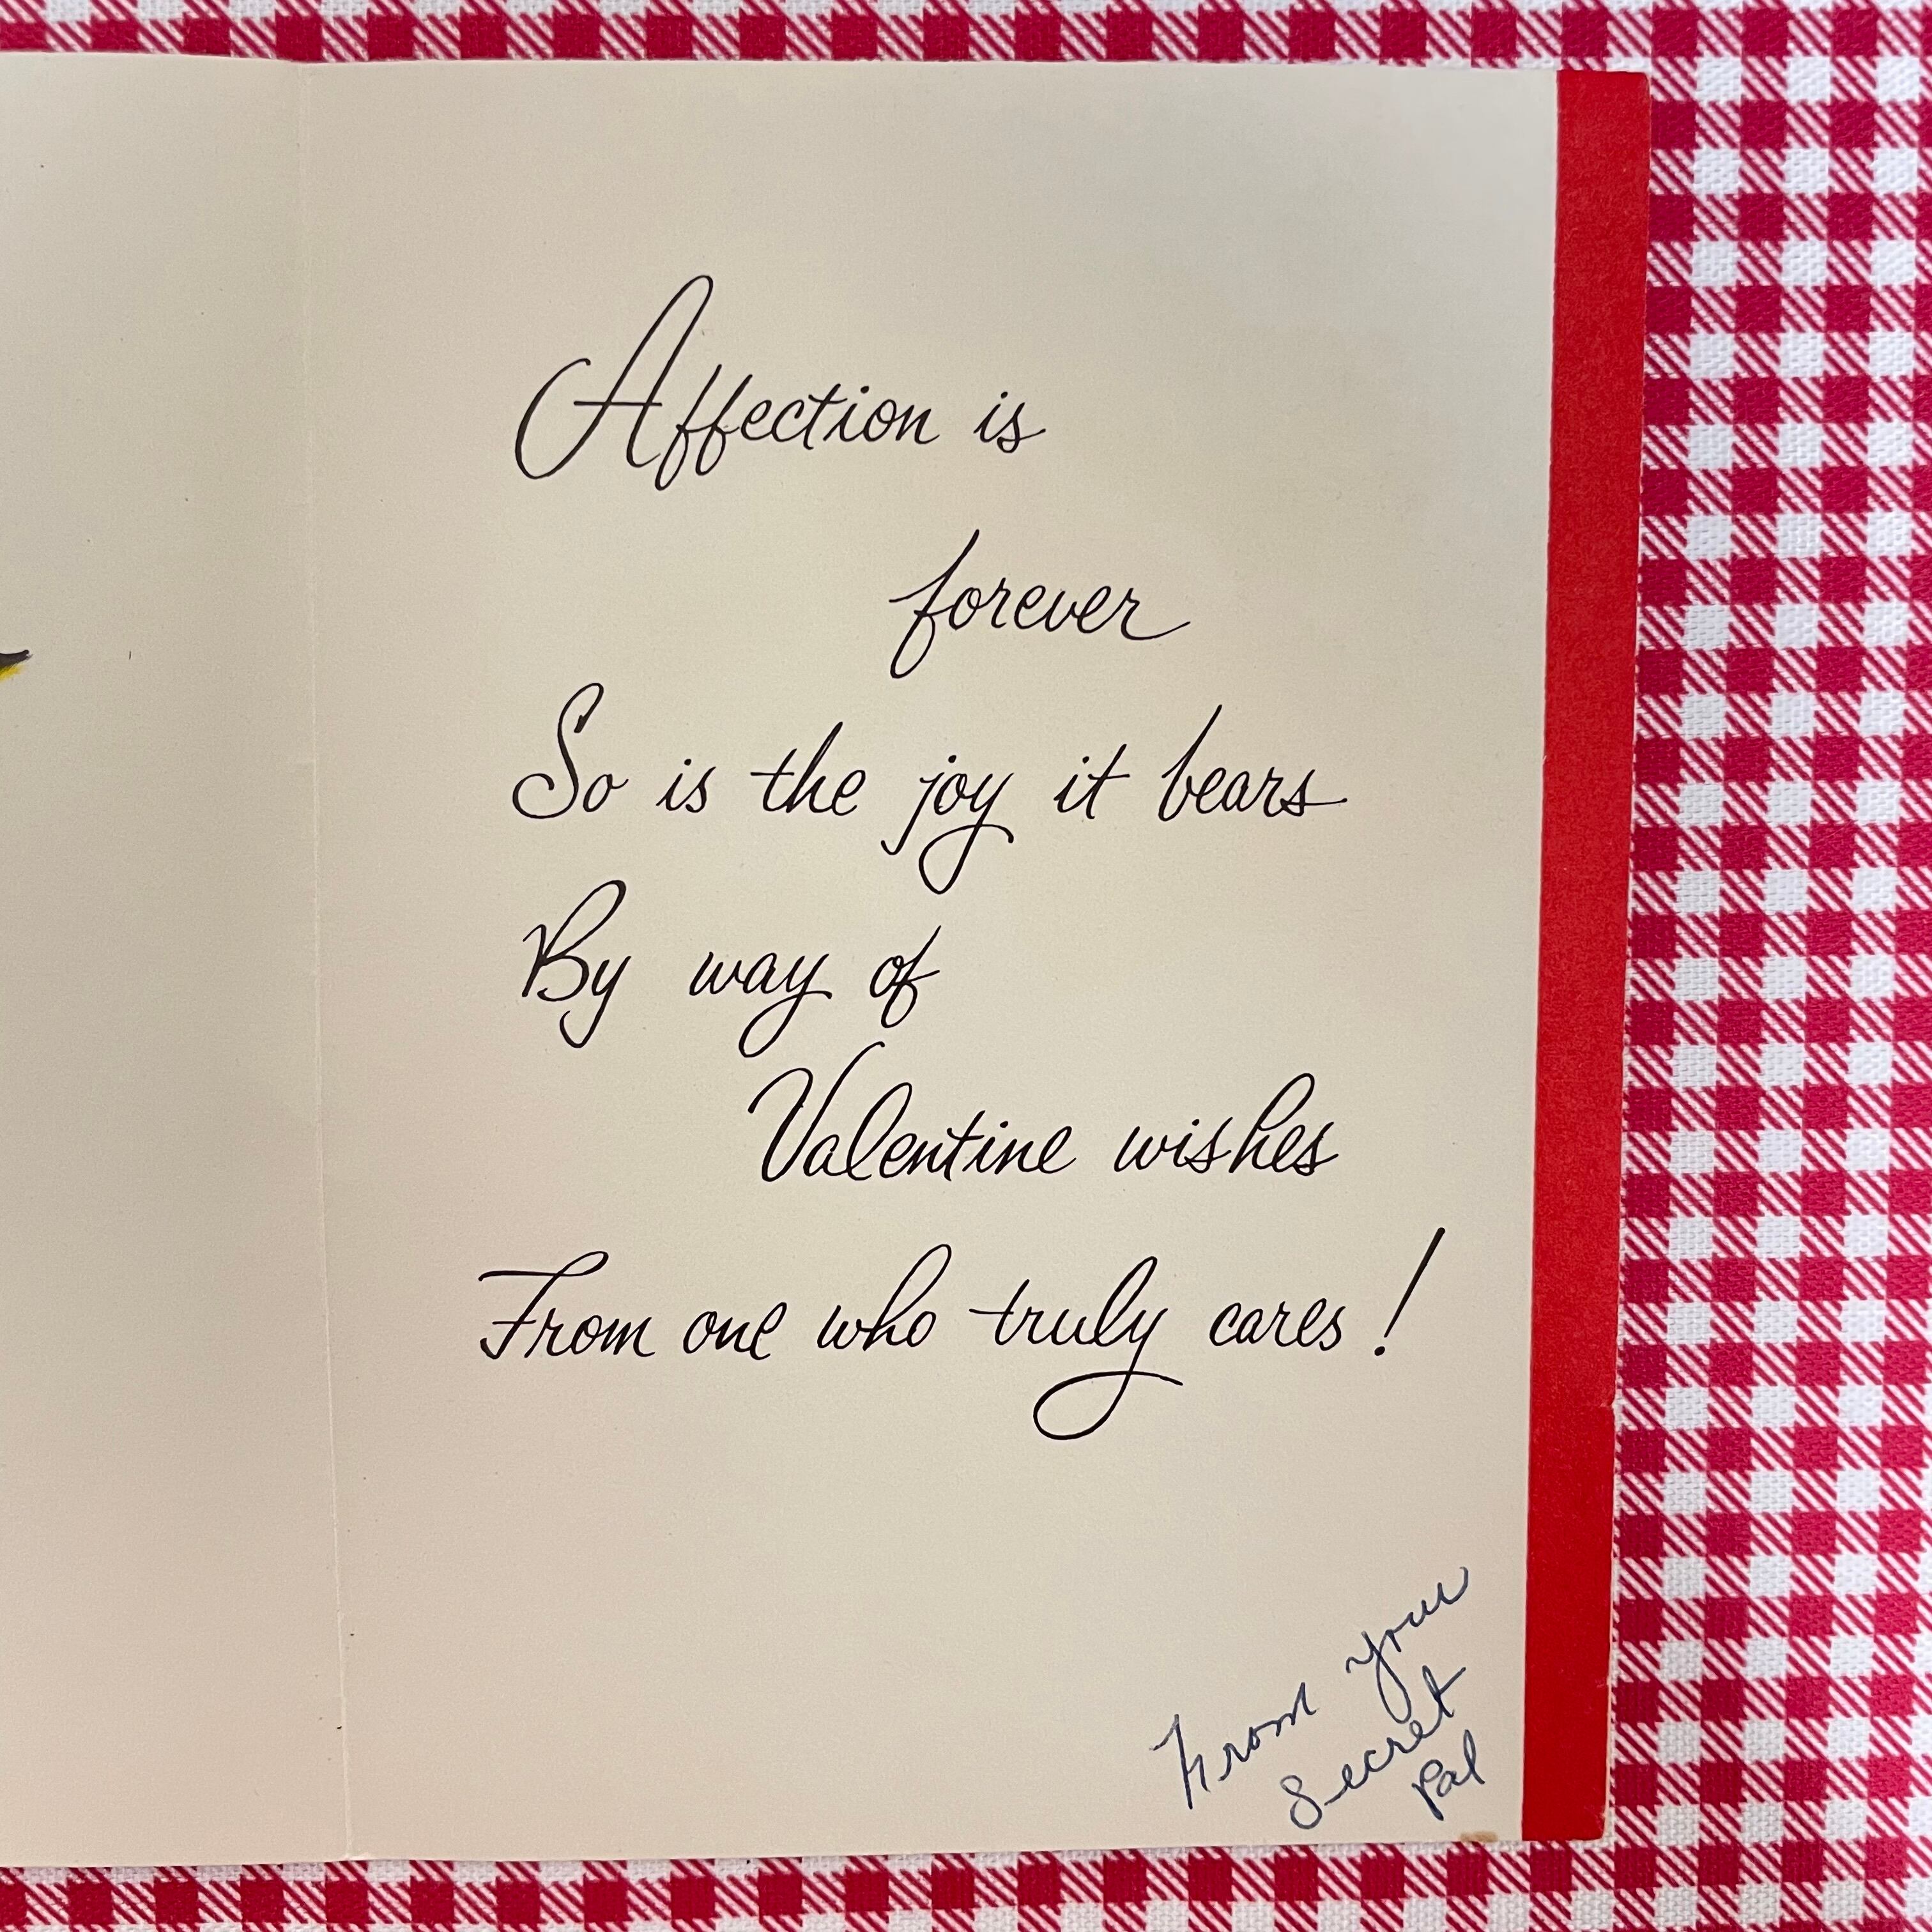 Affection is
forever
So is the joy it bears
By way of
Valentine wishes
From one who truly cares!
From your
Secret
Pal